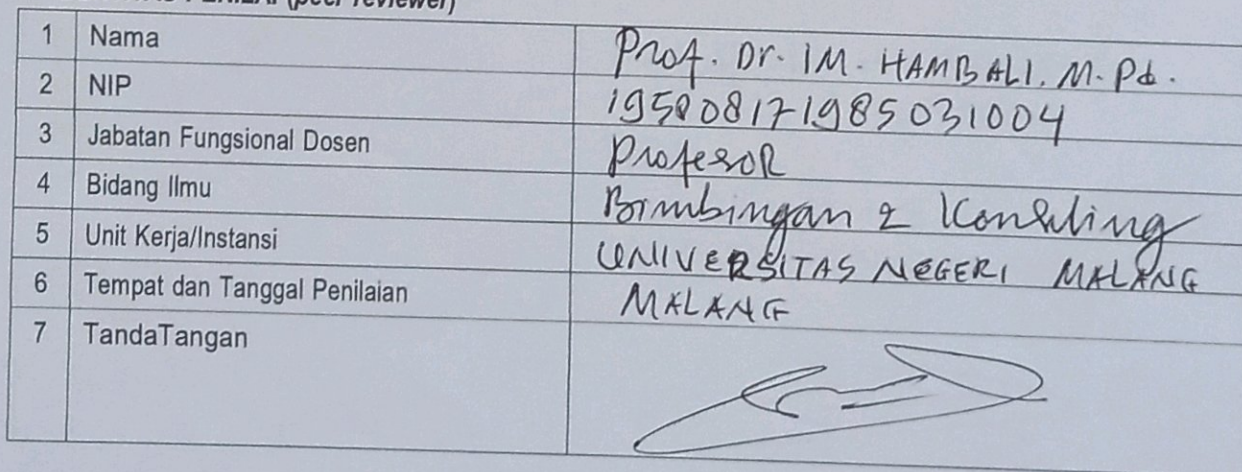 (peer reviewer)
1 Nama Prof. Dr. IM. HAMBALI. M.Pd.
2 NIP 195908171985031004
3 Jabatan Fungsional Dosen Profesor
4 Bidang Ilmu Bimbingan & Konseling
5 Unit Kerja/Instansi UNIVERSITAS NEGERI MALANG
6 Tempat dan Tanggal Penilaian MALANG
7 TandaTangan